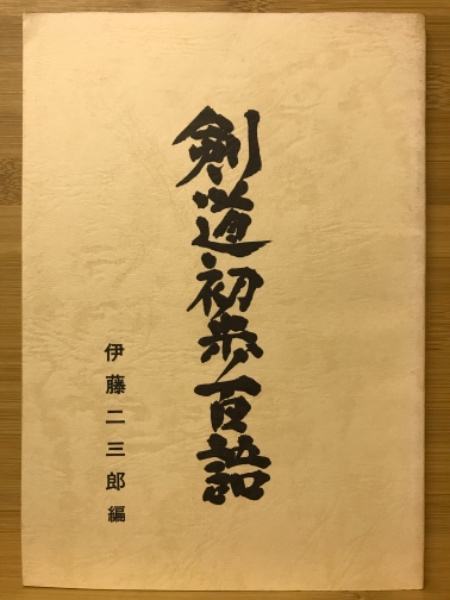 剣道初歩百話
伊藤二三郎編